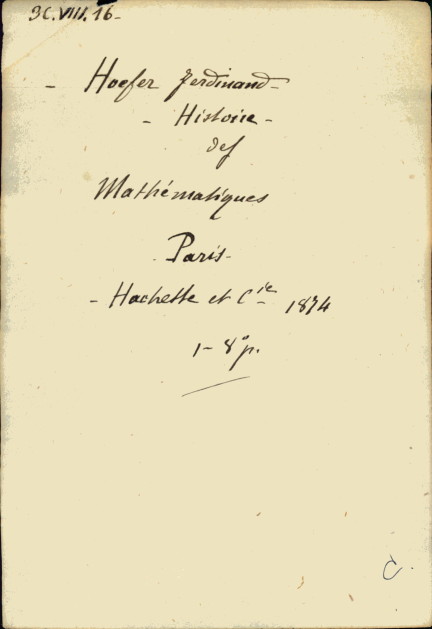 3C.VIII.16-
- Hoefer Ferdinand -
- Histoire -
des
Mathématiques
- Paris -
- Hachette et Cie 1874
1- 8° p.
C.